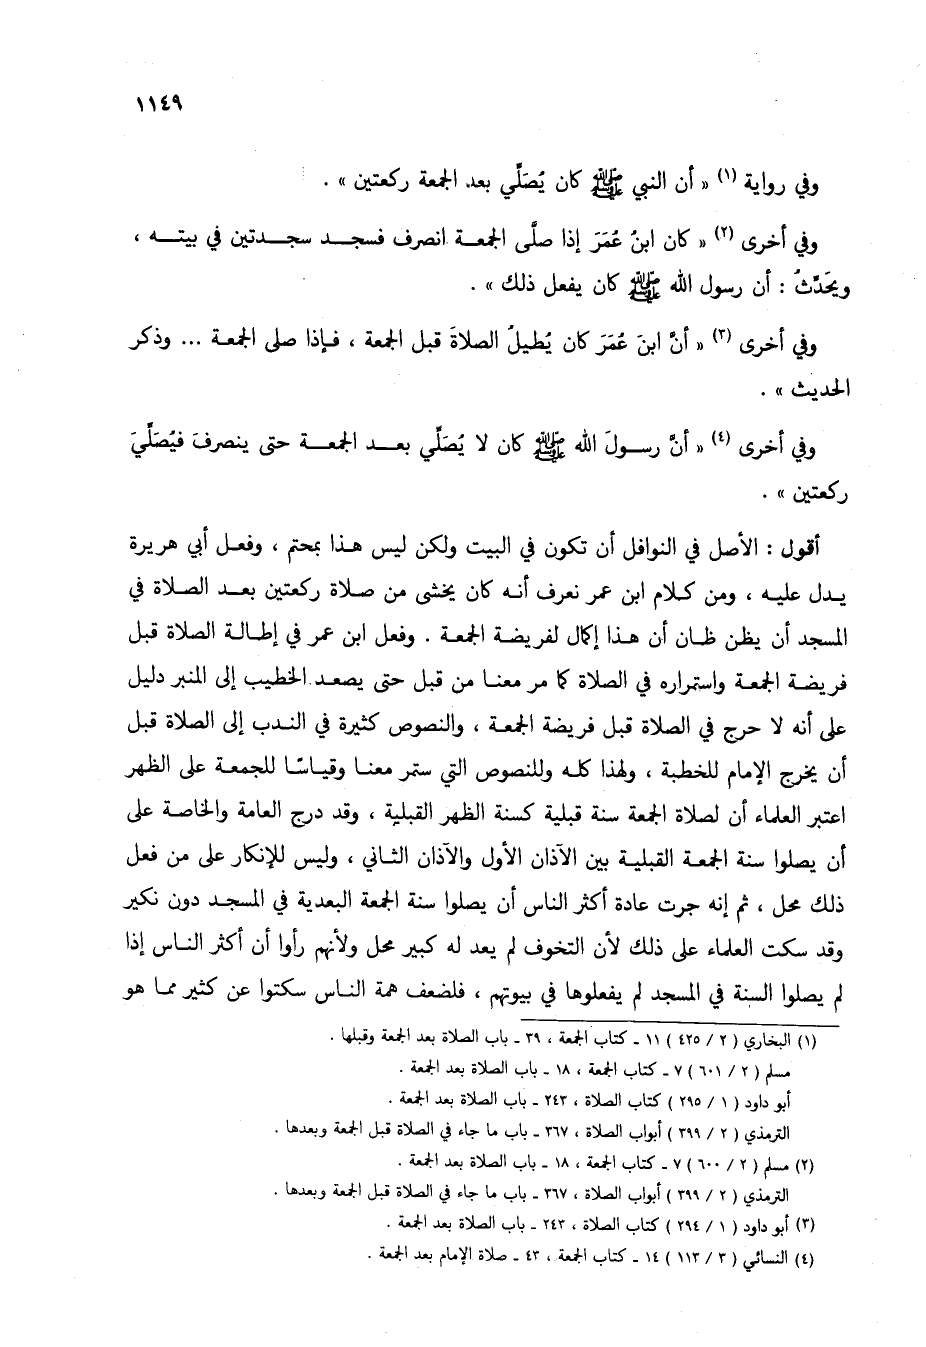 ١١٤٩
وفي رواية (١) « أن النبي ﷺ كان يُصَلِّي بعد الجمعة ركعتين » .
وفي أخرى (٢) « كان ابنُ عُمَرَ إذا صلَّى الجمعـــة انصرف فسجـــد سجـــدتين في بيتـــه ،
ويحَدِّثُ : أن رسول الله ﷺ كان يفعل ذلك » .
وفي أخرى (٣) « أنَّ ابنَ عُمَرَ كان يُطيلُ الصلاةَ قبل الجمعة ، فـإذا صلى الجمعـة ... وذكر
الحديث » .
وفي أخرى (٤) « أنَّ رسـولَ الله ﷺ كان لا يُصَلِّي بعـد الجمعـة حتى ينصرفَ فيُصَلِّيَ
ركعتين » .
أقول : الأصل في النوافل أن تكون في البيت ولكن ليس هـذا بمحتم ، وفعـل أبي هريرة
يـدل عليـه ، ومن كـلام ابن عمر نعرف أنـه كان يخشى من صلاة ركعتين بعـد الصلاة في
المسجد أن يظن ظان أن هـذا إكمال لفريضة الجمعة . وفعل ابن عمر في إطالـة الصلاة قبل
فريضـة الجمعـة واستمراره في الصلاة كما مر معنـا من قبل حتى يصعـد الخطيب إلى المنبر دليل
على أنه لا حرج في الصلاة قبل فريضة الجمعة ، والنصوص كثيرة في النـدب إلى الصلاة قبل
أن يخرج الإمام للخطبة ، ولهذا كلـه وللنصوص التي ستمر معنـا وقيـاسًا للجمعـة على الظهر
اعتبر العلماء أن لصلاة الجمعة سنة قبلية كسنة الظهر القبلية ، وقد درج العامة والخاصـة على
أن يصلوا سنة الجمعة القبليـة بين الآذان الأول والآذان الثـاني ، وليس للإنكار على من فعل
ذلك محل ، ثم إنه جرت عادة أكثر الناس أن يصلوا سنة الجمعة البعدية في المسجـد دون نكير
وقد سكت العلماء على ذلك لأن التخوف لم يعد له كبير محل ولأنهم رأوا أن أكثر النـاس إذا
لم يصلوا السنة في المسجد لم يفعلوها في بيوتهم ، فلضعف همة النـاس سكتوا عن كثير ممـا هو
(١) البخاري ( ٢ / ٤٢٥ ) ١١ ـ كتاب الجمعة ، ٣٩ ـ باب الصلاة بعد الجمعة وقبلها .
مسلم ( ٢ / ٦٠١ ) ٧ ـ كتاب الجمعة ، ١٨ ـ باب الصلاة بعد الجمعة .
أبو داود ( ١ / ٢٩٥ ) كتاب الصلاة ، ٢٤٣ ـ باب الصلاة بعد الجمعة .
الترمذي ( ٢ / ٣٩٩ ) أبواب الصلاة ، ٣٦٧ ـ باب ما جاء في الصلاة قبل الجمعة وبعدها .
(٢) مسلم ( ٢ / ٦٠٠ ) ٧ ـ كتاب الجمعة ، ١٨ ـ باب الصلاة بعد الجمعة .
الترمذي ( ٢ / ٣٩٩ ) أبواب الصلاة ، ٣٦٧ ـ باب ما جاء في الصلاة قبل الجمعة وبعدها .
(٣) أبو داود ( ١ / ٢٩٤ ) كتاب الصلاة ، ٢٤٣ ـ باب الصلاة بعد الجمعة .
(٤) النسائي ( ٣ / ١١٣ ) ١٤ ـ كتاب الجمعة ، ٤٣ ـ صلاة الإمام بعد الجمعة .